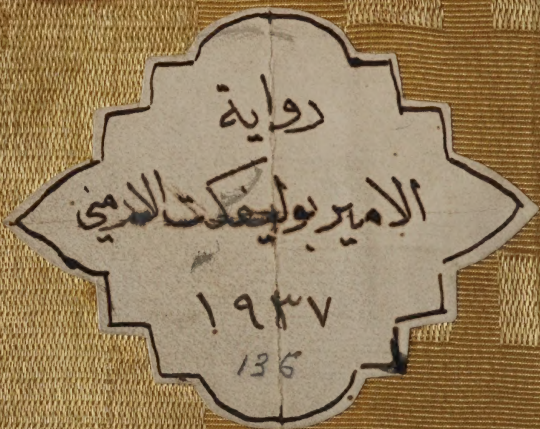 رواية
الامير بوليفكت الارمني
١٩٣٧
136